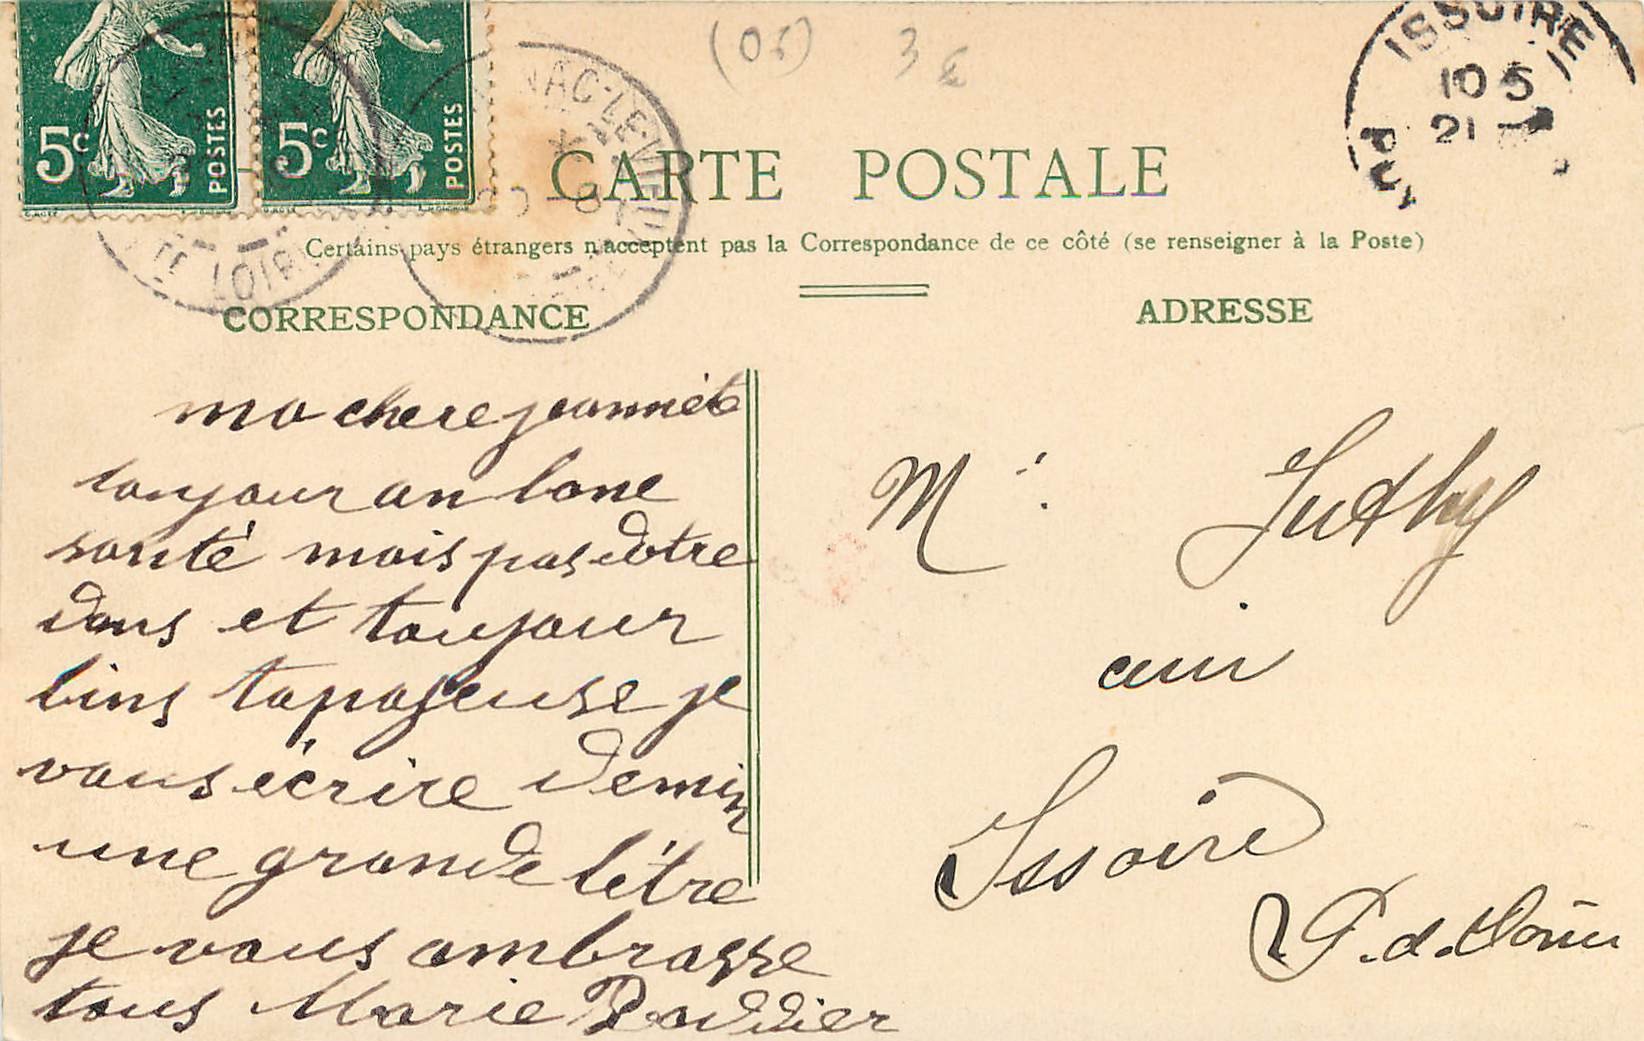 5c POSTES 5c POSTES
(05) 3 €
AC-LE-VIEUX
LOIRE
ISSOIRE
10 5
21
CARTE POSTALE
Certains pays étrangers n'acceptent pas la Correspondance de ce côté (se renseigner à la Poste)
CORRESPONDANCE
ma chere jeannete
toujour an bone
santé mais pas dotre
dans et toujour
bins tapageuse je
vous écrire demin
une grande létre
je vous ambrasse
tous Marie
ADRESSE
M
Issoire
P. d. Dôme